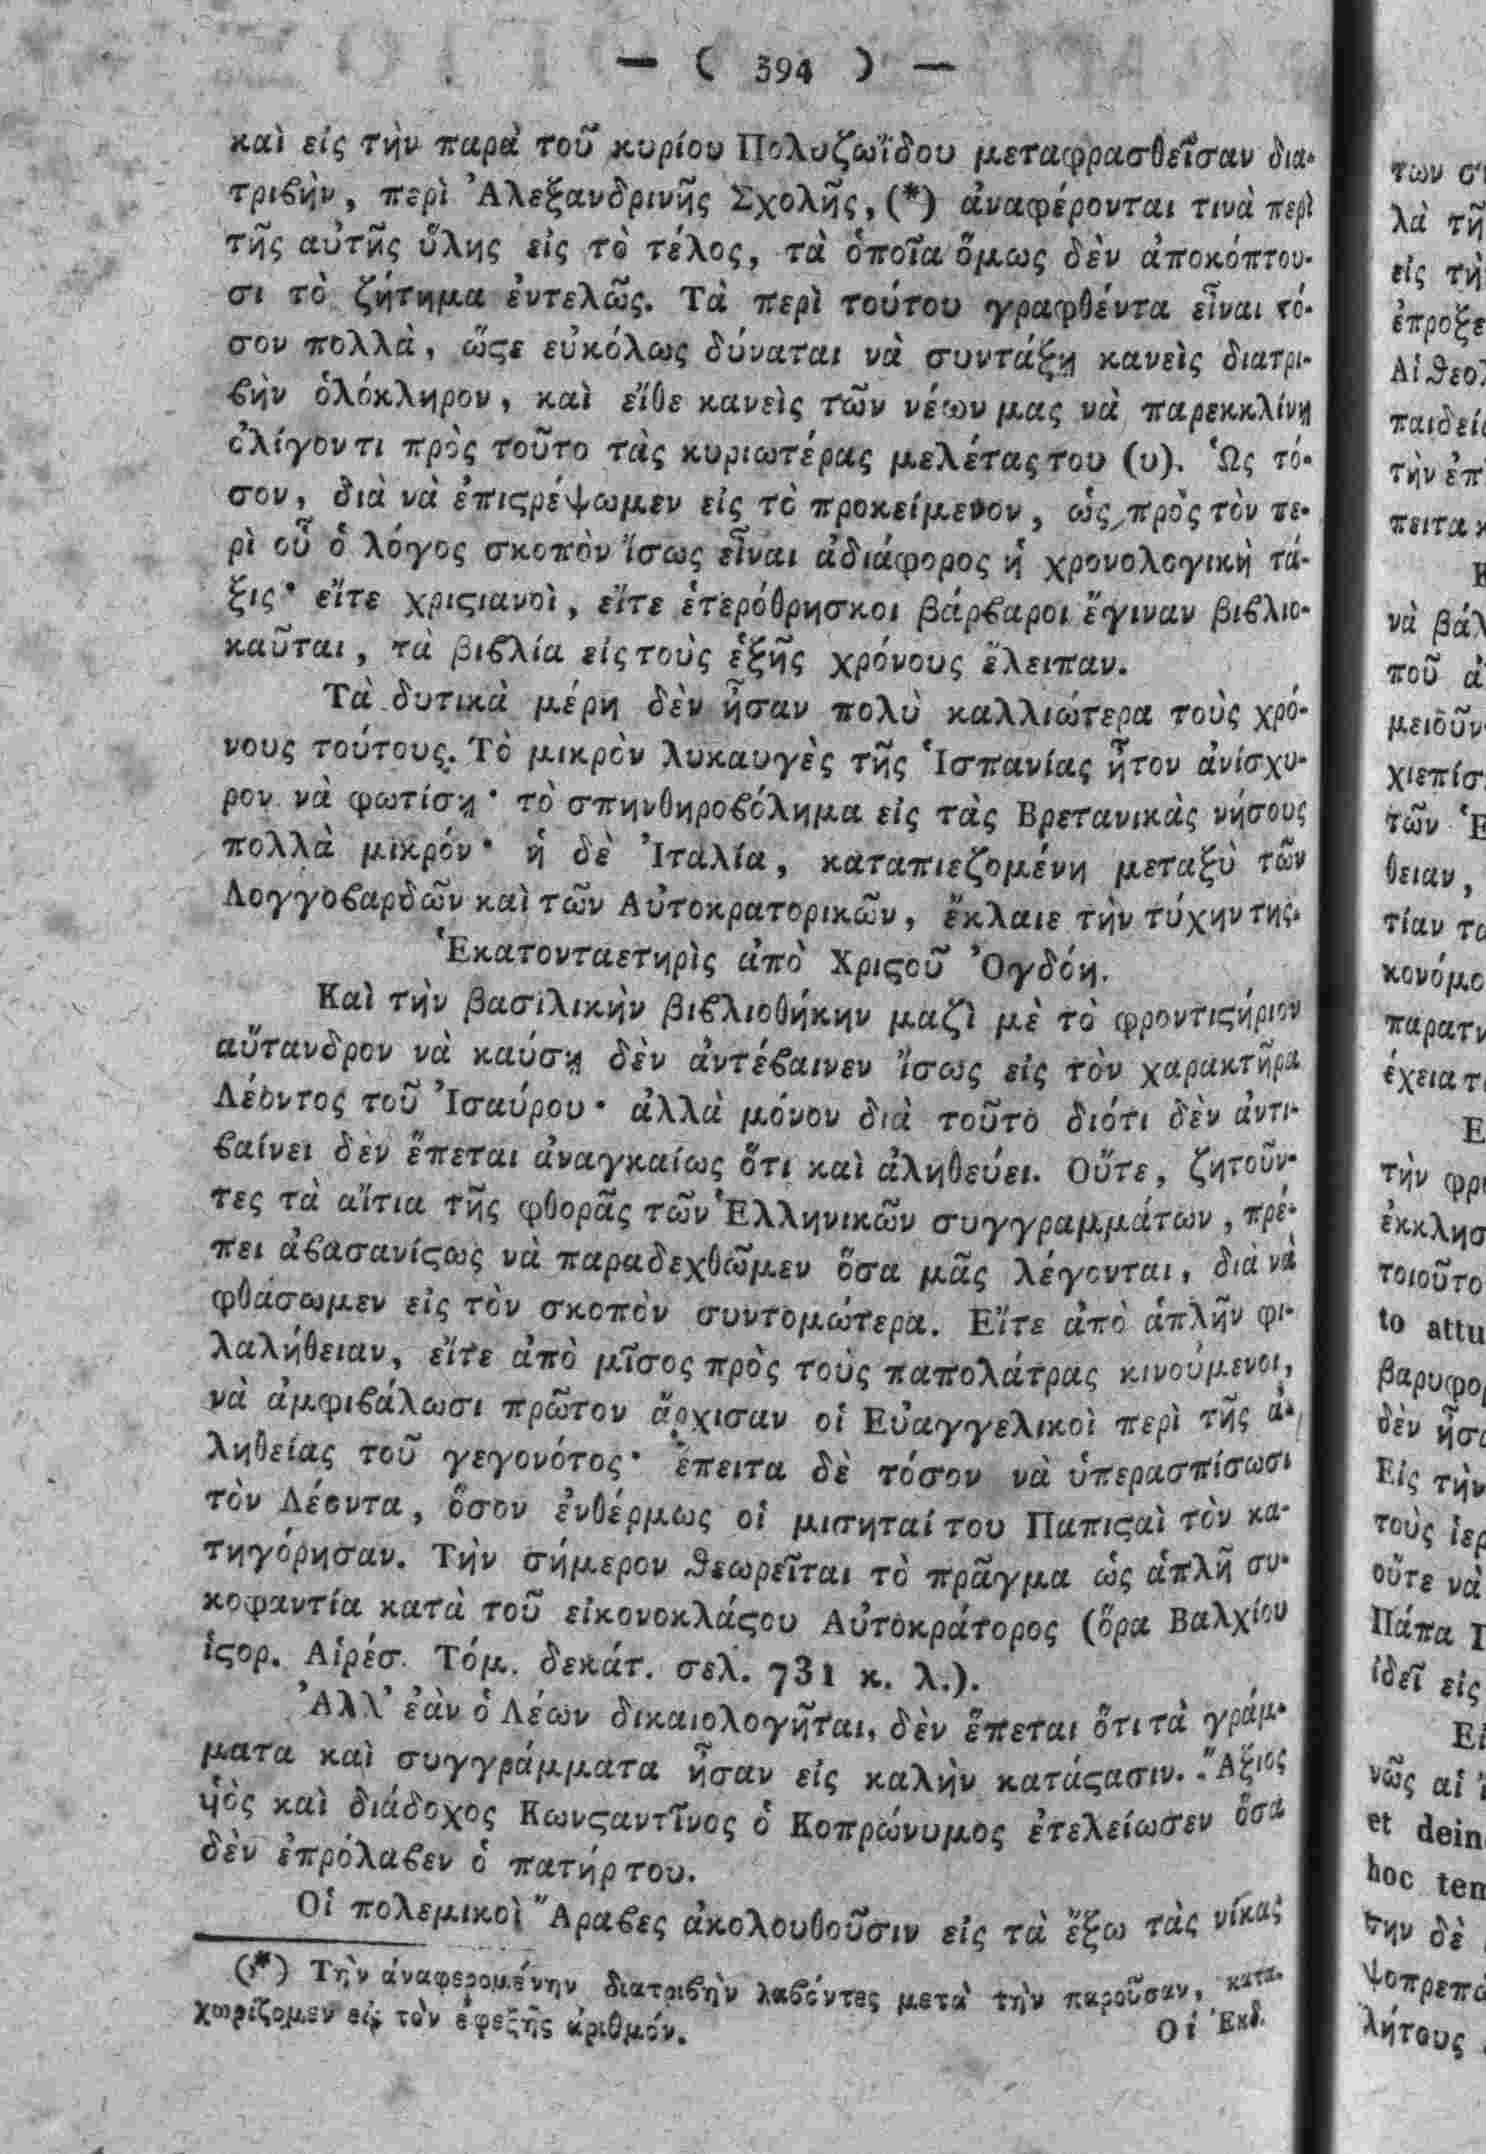 — ( 394 ) —
καὶ εἰς τὴν παρὰ τοῦ κυρίου Πολυζωΐδου μεταφρασθεῖσαν δια-
τριϐὴν, περὶ Ἀλεξανδρινῆς Σχολῆς, (*) ἀναφέρονται τινὰ περὶ
τῆς αὐτῆς ὕλης εἰς τὸ τέλος, τὰ ὁποῖα ὅμως δὲν ἀποκόπτου-
σι τὸ ζήτημα ἐντελῶς. Τὰ περὶ τούτου γραφθέντα εἶναι τό-
σον πολλὰ, ὥϛε εὐκόλως δύναται νὰ συντάξῃ κανεὶς διατρι-
ϐὴν ὁλόκληρον, καὶ εἴθε κανεὶς τῶν νέων μας νὰ παρεκκλίνῃ
ὀλίγον τι πρὸς τοῦτο τὰς κυριωτέρας μελέτας του (υ). Ὡς τό-
σον, διὰ νὰ ἐπιϛρέψωμεν εἰς τὸ προκείμενον, ὡς πρὸς τὸν πε-
ρὶ οὗ ὁ λόγος σκοπὸν ἴσως εἶναι ἀδιάφορος ἡ χρονολογικὴ τά-
ξις· εἴτε χριϛιανοὶ, εἴτε ἑτερόθρησκοι βάρϐαροι ἔγιναν βιϐλιο-
καῦται, τὰ βιϐλία εἰς τοὺς ἑξῆς χρόνους ἔλειπαν.
Τὰ δυτικὰ μέρη δὲν ἦσαν πολὺ καλλιώτερα τοὺς χρό-
νους τούτους. Τὸ μικρὸν λυκαυγὲς τῆς Ἱσπανίας ἦτον ἀνίσχυ-
ρον νὰ φωτίσῃ· τὸ σπηνθηροϐόλημα εἰς τὰς Βρετανικὰς νήσους
πολλὰ μικρόν· ἡ δὲ Ἰταλία, καταπιεζομένη μεταξὺ τῶν
Λογγοϐαρδῶν καὶ τῶν Αὐτοκρατορικῶν, ἔκλαιε τὴν τύχην της.
Ἑκατονταετηρὶς ἀπὸ Χριϛοῦ Ὀγδόη.
Καὶ τὴν βασιλικὴν βιϐλιοθήκην μαζὶ μὲ τὸ φροντιϛήριον
αὔτανδρον νὰ καύσῃ δὲν ἀντέϐαινεν ἴσως εἰς τὸν χαρακτῆρα
Λέοντος τοῦ Ἰσαύρου· ἀλλὰ μόνον διὰ τοῦτο διότι δὲν ἀντι-
ϐαίνει δὲν ἕπεται ἀναγκαίως ὅτι καὶ ἀληθεύει. Οὔτε, ζητοῦν-
τες τὰ αἴτια τῆς φθορᾶς τῶν Ἑλληνικῶν συγγραμμάτων, πρέ-
πει ἀϐασανίϛως νὰ παραδεχθῶμεν ὅσα μᾶς λέγονται, διὰ νὰ
φθάσωμεν εἰς τὸν σκοπὸν συντομώτερα. Εἴτε ἀπὸ ἁπλῆν φι-
λαλήθειαν, εἴτε ἀπὸ μῖσος πρὸς τοὺς παπολάτρας κινούμενοι,
νὰ ἀμφιϐάλωσι πρῶτον ἄρχισαν οἱ Εὐαγγελικοὶ περὶ τῆς ἀ-
ληθείας τοῦ γεγονότος· ἔπειτα δὲ τόσον νὰ ὑπερασπίσωσι
τὸν Λέοντα, ὅσον ἐνθέρμως οἱ μισηταί του Παπιϛαὶ τὸν κα-
τηγόρησαν. Τὴν σήμερον θεωρεῖται τὸ πρᾶγμα ὡς ἁπλῆ συ-
κοφαντία κατὰ τοῦ εἰκονοκλάϛου Αὐτοκράτορος (ὅρα Βαλχίου
ἱϛορ. Αἱρέσ. Τόμ. δεκάτ. σελ. 731 κ. λ.).
Ἀλλ' ἐὰν ὁ Λέων δικαιολογῆται, δὲν ἕπεται ὅτι τὰ γράμ-
ματα καὶ συγγράμματα ἦσαν εἰς καλὴν κατάϛασιν. Ἄξιος
ὑιὸς καὶ διάδοχος Κωνϛαντῖνος ὁ Κοπρώνυμος ἐτελείωσεν ὅσα
δὲν ἐπρόλαϐεν ὁ πατήρ του.
Οἱ πολεμικοὶ Ἄραϐες ἀκολουθοῦσιν εἰς τὰ ἔξω τὰς νίκας
(*) Τὴν ἀναφερομένην διατριϐὴν λαϐόντες μετὰ τὴν παροῦσαν, κατα-
χωρίζομεν εἰς τὸν ἐφεξῆς ἀριθμόν.
Οἱ Ἐκδ.
των
λὰ
εἰς
Αἱ
νὰ
ποῦ
τῶν
θειαν,
τίαν
τὴν
τοιοῦτο
to
δὲν
Εἰς τὴν
τοὺς
οὔτε νὰ
Πάπα
ἰδεῖ εἰς
νῶς αἱ
et
hoc
την δὲ
λήτους